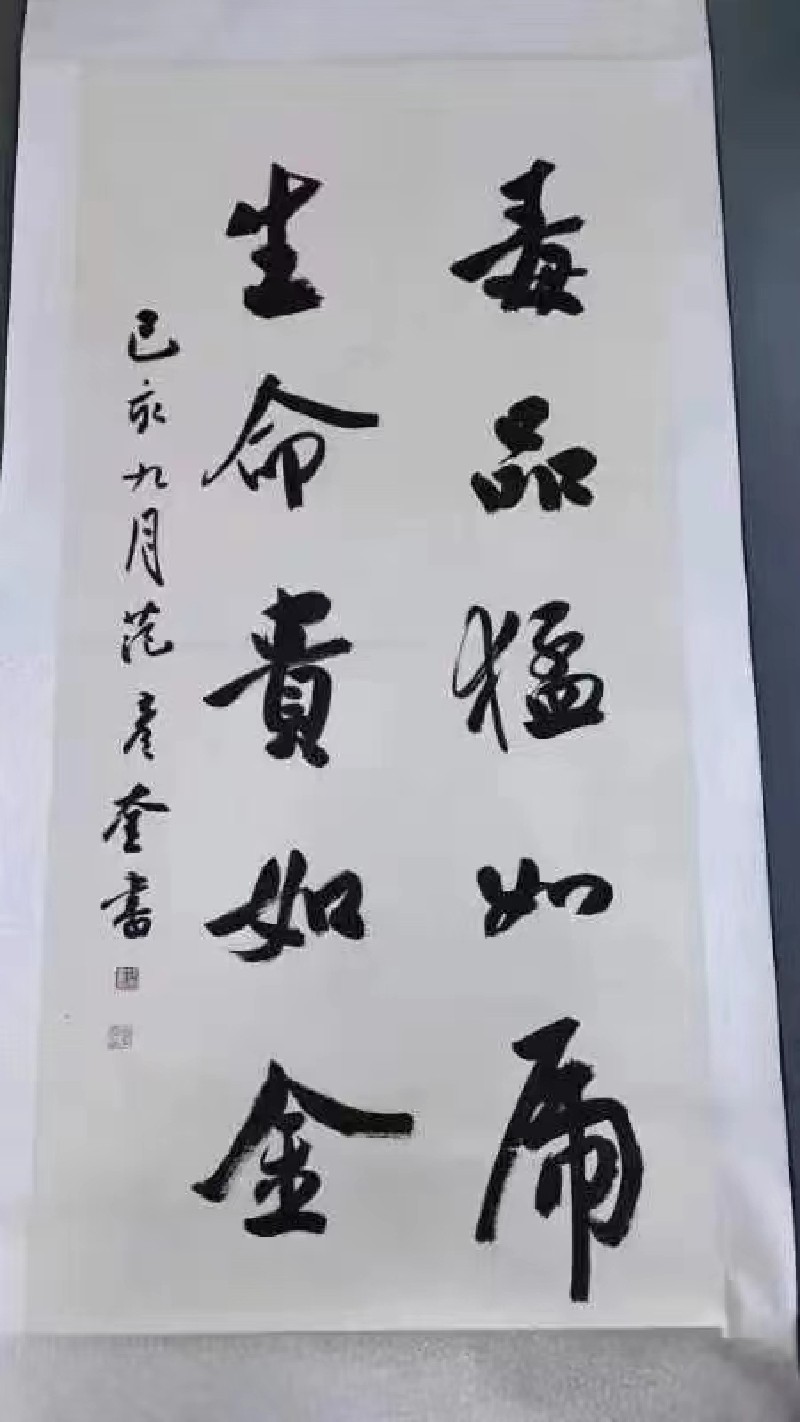 毒品猛如虎
生命貴如金
己亥九月范彦奎書